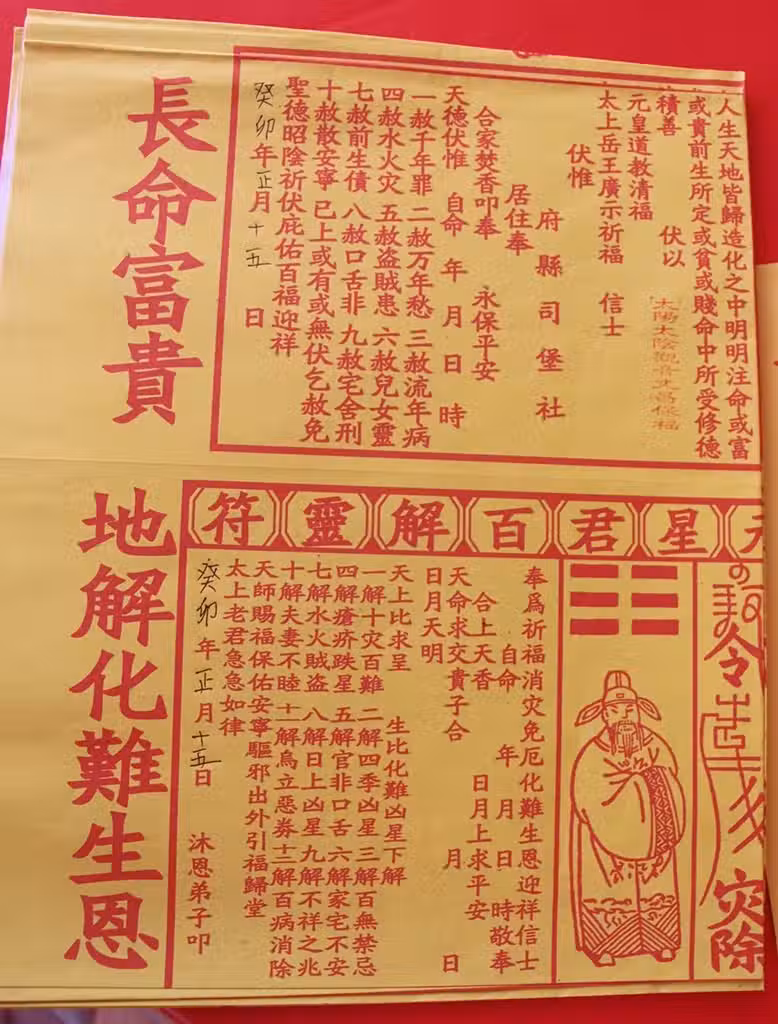 人生天地皆歸造化之中明明注命或富
或貴前生所定或貧或賤命中所受修德
積善 伏以
元皇道教清福
太上岳王廣示祈福 信士
伏惟
府縣司堡社
居住奉
合家焚香叩奉 永保平安
天德伏惟 自命 年月日時
一赦千年罪 二赦万年愁 三赦流年病
四赦水火灾 五赦盗賊患 六赦兒女靈
七赦前生債 八赦口舌非 九赦宅舍刑
十赦散安寧 已上或有或無伏乞赦免
聖德昭陰祈伏庇佑百福迎祥
癸卯年正月十五日
長命富貴
星君百解靈符
令
灾除
奉爲祈福消灾免厄化難生恩迎祥信士
自命 年月日時敬奉
合上天香 日月上求平安
天命求交貴子合 月日
日月天明
天上比求呈 生比化難凶星下解
一解十灾百難 二解四季凶星 三解百無禁忌
四解瘡疥跌星 五解官非口舌 六解家宅不安
七解水火賊盗 八解日上凶星 九解不祥之兆
十解夫妻不睦 十一解烏立惡券 十二解百病消除
天師賜福保佑安寧驅邪出外引福歸堂
太上老君急急如律
癸卯年正月十五日 沐恩弟子叩
地解化難生恩